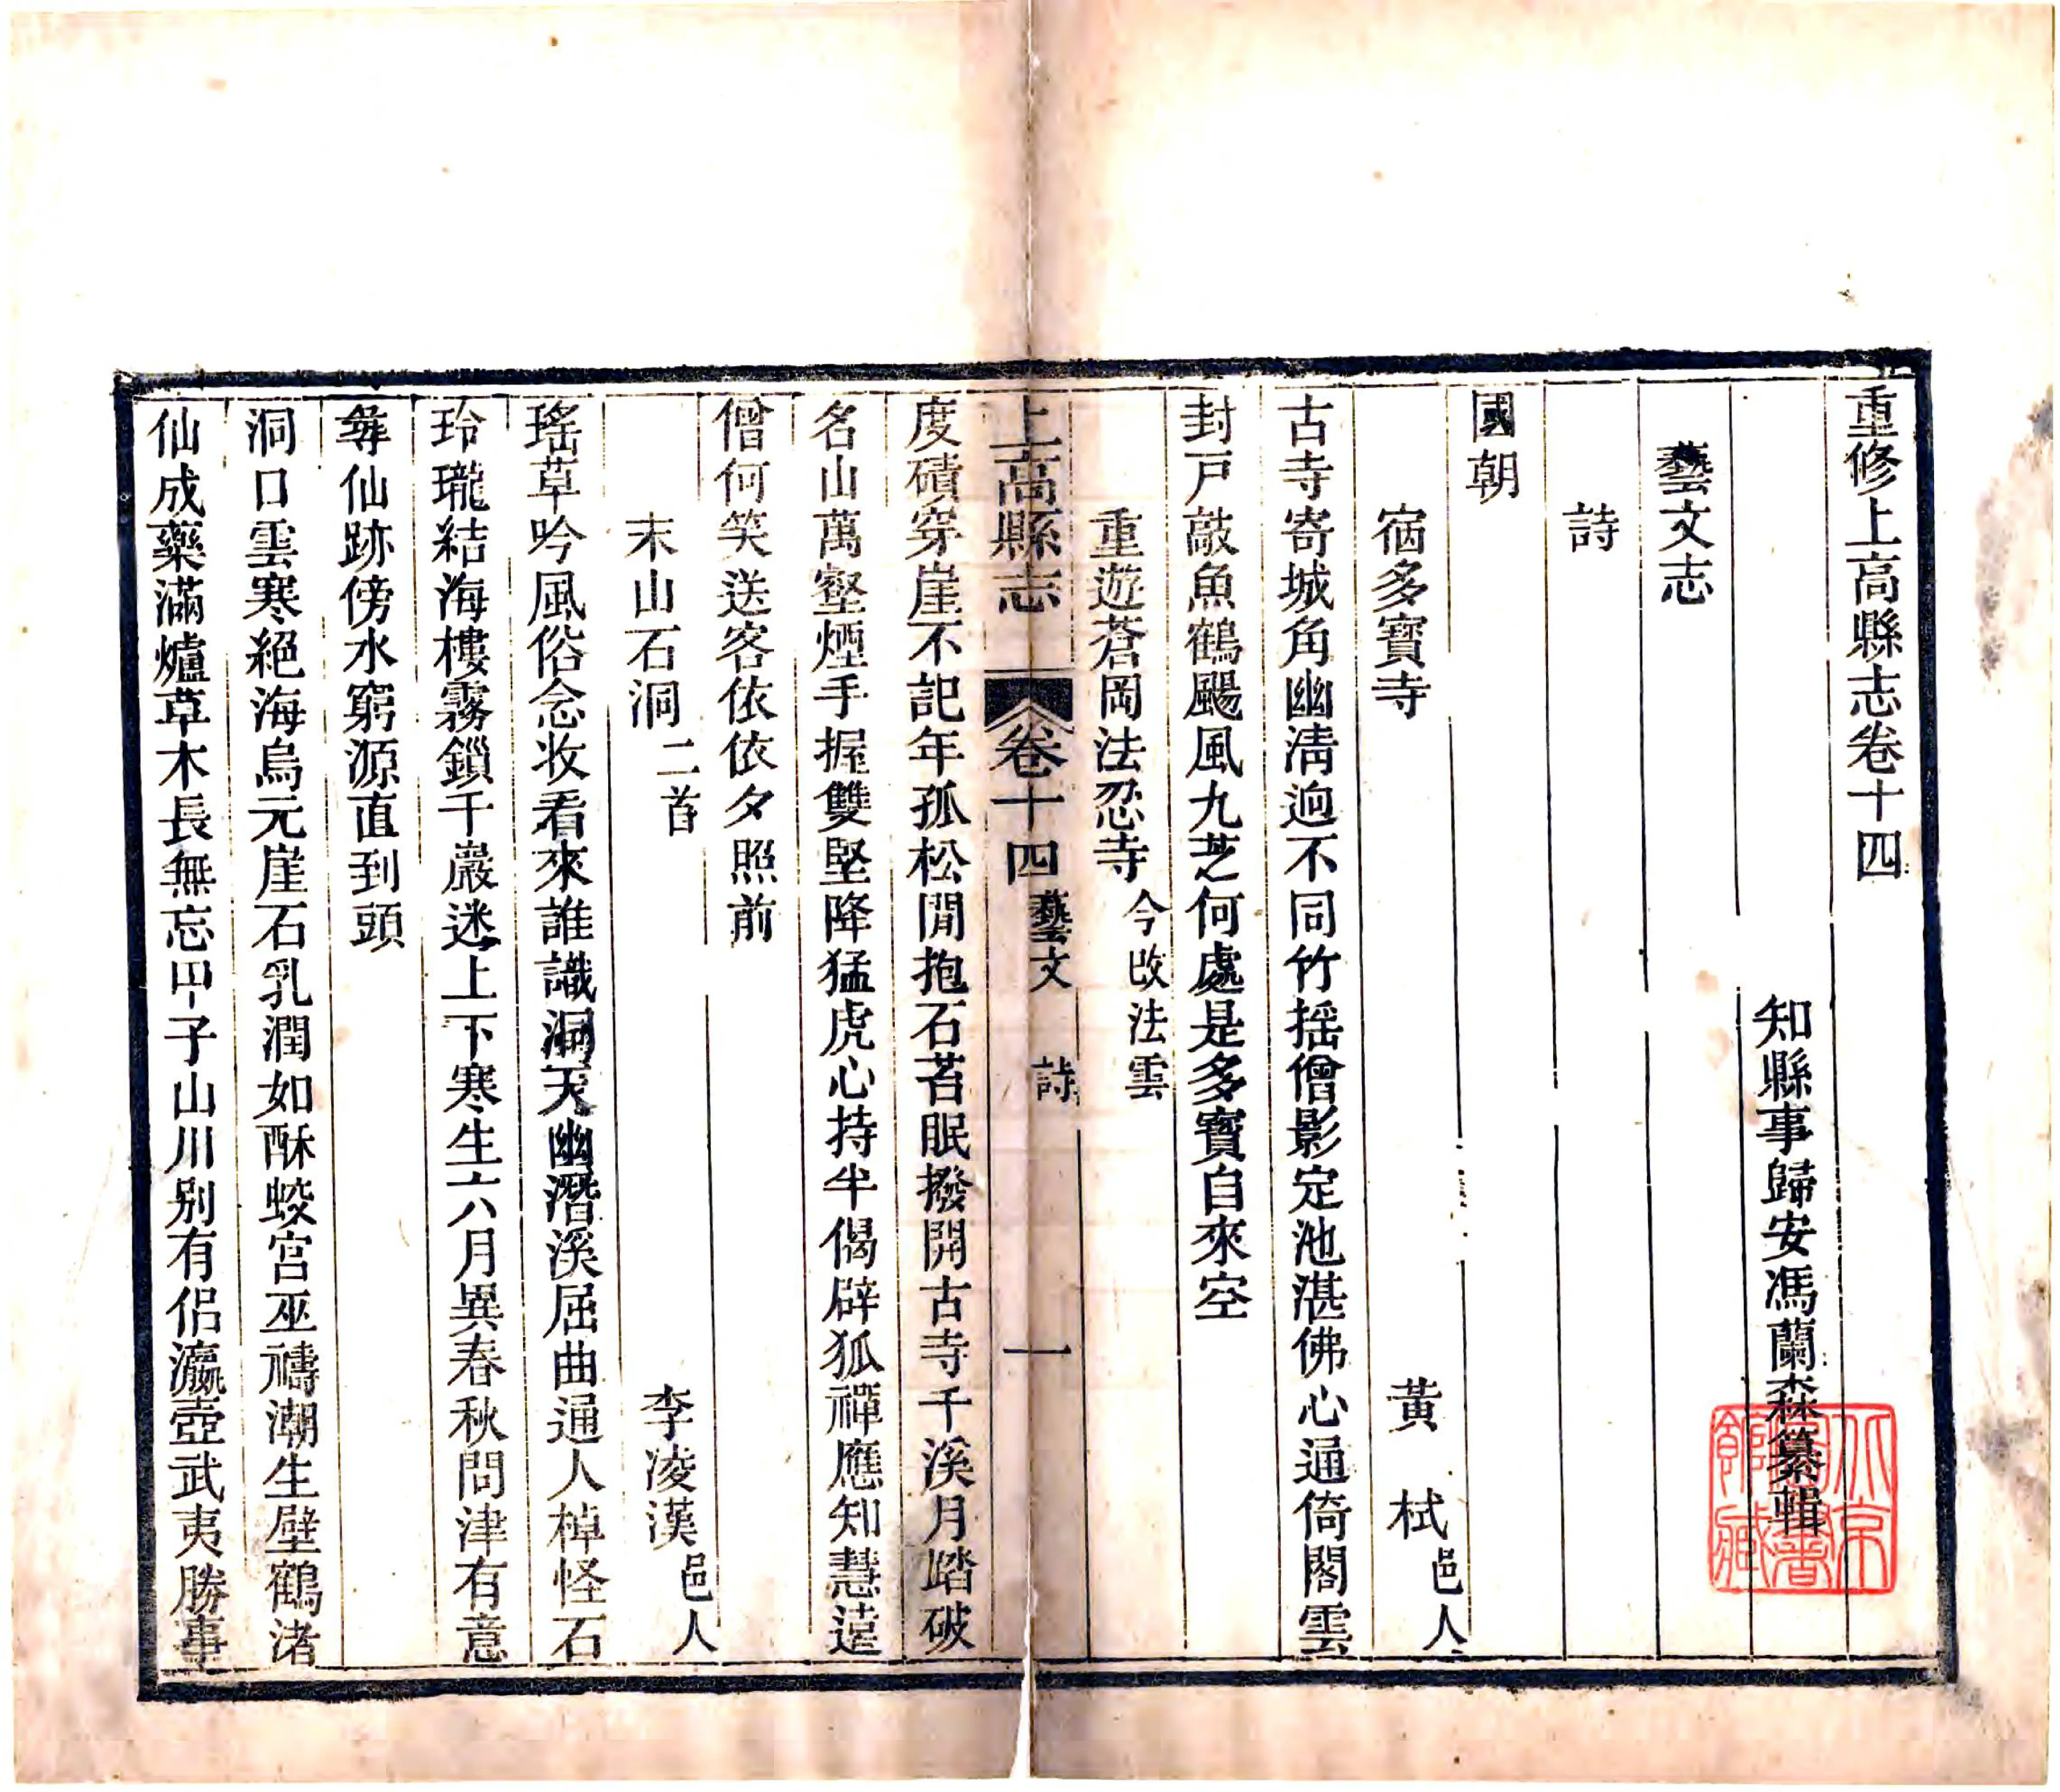 重修上高縣志卷十四
知縣事歸安馮蘭森纂輯
藝文志
詩
國朝
宿多寶寺　黃　栻邑人
古寺寄城角幽淸逈不同竹搖僧影定池湛佛心通倚閣雲
封戸敲魚鶴颺風九芝何處是多寶自來空
重遊蒼岡法忍寺今改法雲
上高縣志　卷十四　藝文　詩　一
度磧穿崖不記年孤松閒抱石苔眠撥開古寺千溪月踏破
名山萬壑煙手握雙堅降猛虎心持半偈辟狐禪應知慧遠
僧何笑送客依依夕照前
末山石洞二首　李凌漢邑人
瑤草吟風俗念收看來誰識洞天幽潛溪屈曲通人棹怪石
玲瓏結海樓霧鎖千巖迷上下寒生六月異春秋問津有意
尋仙跡傍水窮源直到頭
洞口雲寒絕海烏元崖石乳潤如酥蛟宮巫禱潮生壁鶴渚
仙成藥滿爐草木長無忘甲子山川別有侶瀛壺武夷勝事
北京圖書館藏